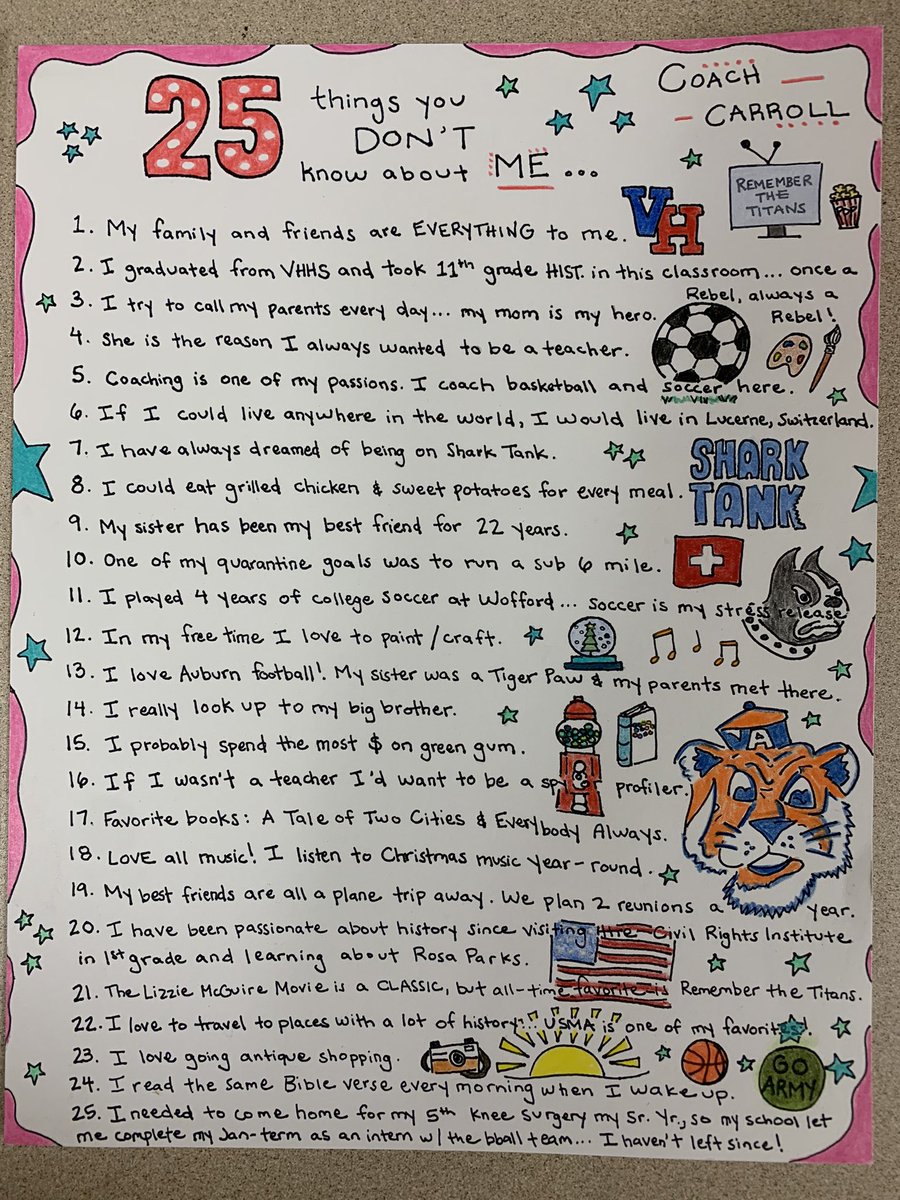 25 things you
DON'T
know about ME...
COACH —
- CARROLL
REMEMBER
THE
TITANS
VH
1. My family and friends are EVERYTHING to me.
2. I graduated from VHHS and took 11th grade HIST. in this classroom... once a
Rebel, always a
Rebel!
3. I try to call my parents every day... my mom is my hero.
4. She is the reason I always wanted to be a teacher.
5. Coaching is one of my passions. I coach basketball and soccer here.
6. If I could live anywhere in the world, I would live in Lucerne, Switzerland.
7. I have always dreamed of being on Shark Tank.
SHARK
TANK
8. I could eat grilled chicken & sweet potatoes for every meal.
9. My sister has been my best friend for 22 years.
10. One of my quarantine goals was to run a sub 6 mile.
11. I played 4 years of college soccer at Wofford... soccer is my stress release.
12. In my free time I love to paint/craft.
13. I love Auburn football! My sister was a Tiger Paw & my parents met there.
14. I really look up to my big brother.
15. I probably spend the most $ on green gum.
A
16. If I wasn't a teacher I'd want to be a sp profiler.
17. Favorite books: A Tale of Two Cities & Everybody Always.
18. LOVE all music! I listen to Christmas music year-round.
19. My best friends are all a plane trip away. We plan 2 reunions a year.
20. I have been passionate about history since visiting the Civil Rights Institute
in 1st grade and learning about Rosa Parks.
21. The Lizzie McGuire Movie is a CLASSIC, but all-time favorite is Remember the Titans.
22. I love to travel to places with a lot of history... USMA is one of my favorites!
23. I love going antique shopping.
GO
ARMY
24. I read the same Bible verse every morning when I wake up.
25. I needed to come home for my 5th knee surgery my Sr. Yr., so my school let
me complete my Jan-term as an intern w/ the bball team... I haven't left since!